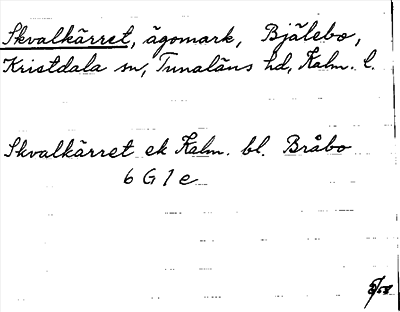 Skvalkärret, ägomark, Bjälebo,
Kristdala sn, Tunaläns hd, Kalm. l.
Skvalkärret ek Kalm. bl. Bråbo
6 G 1 e